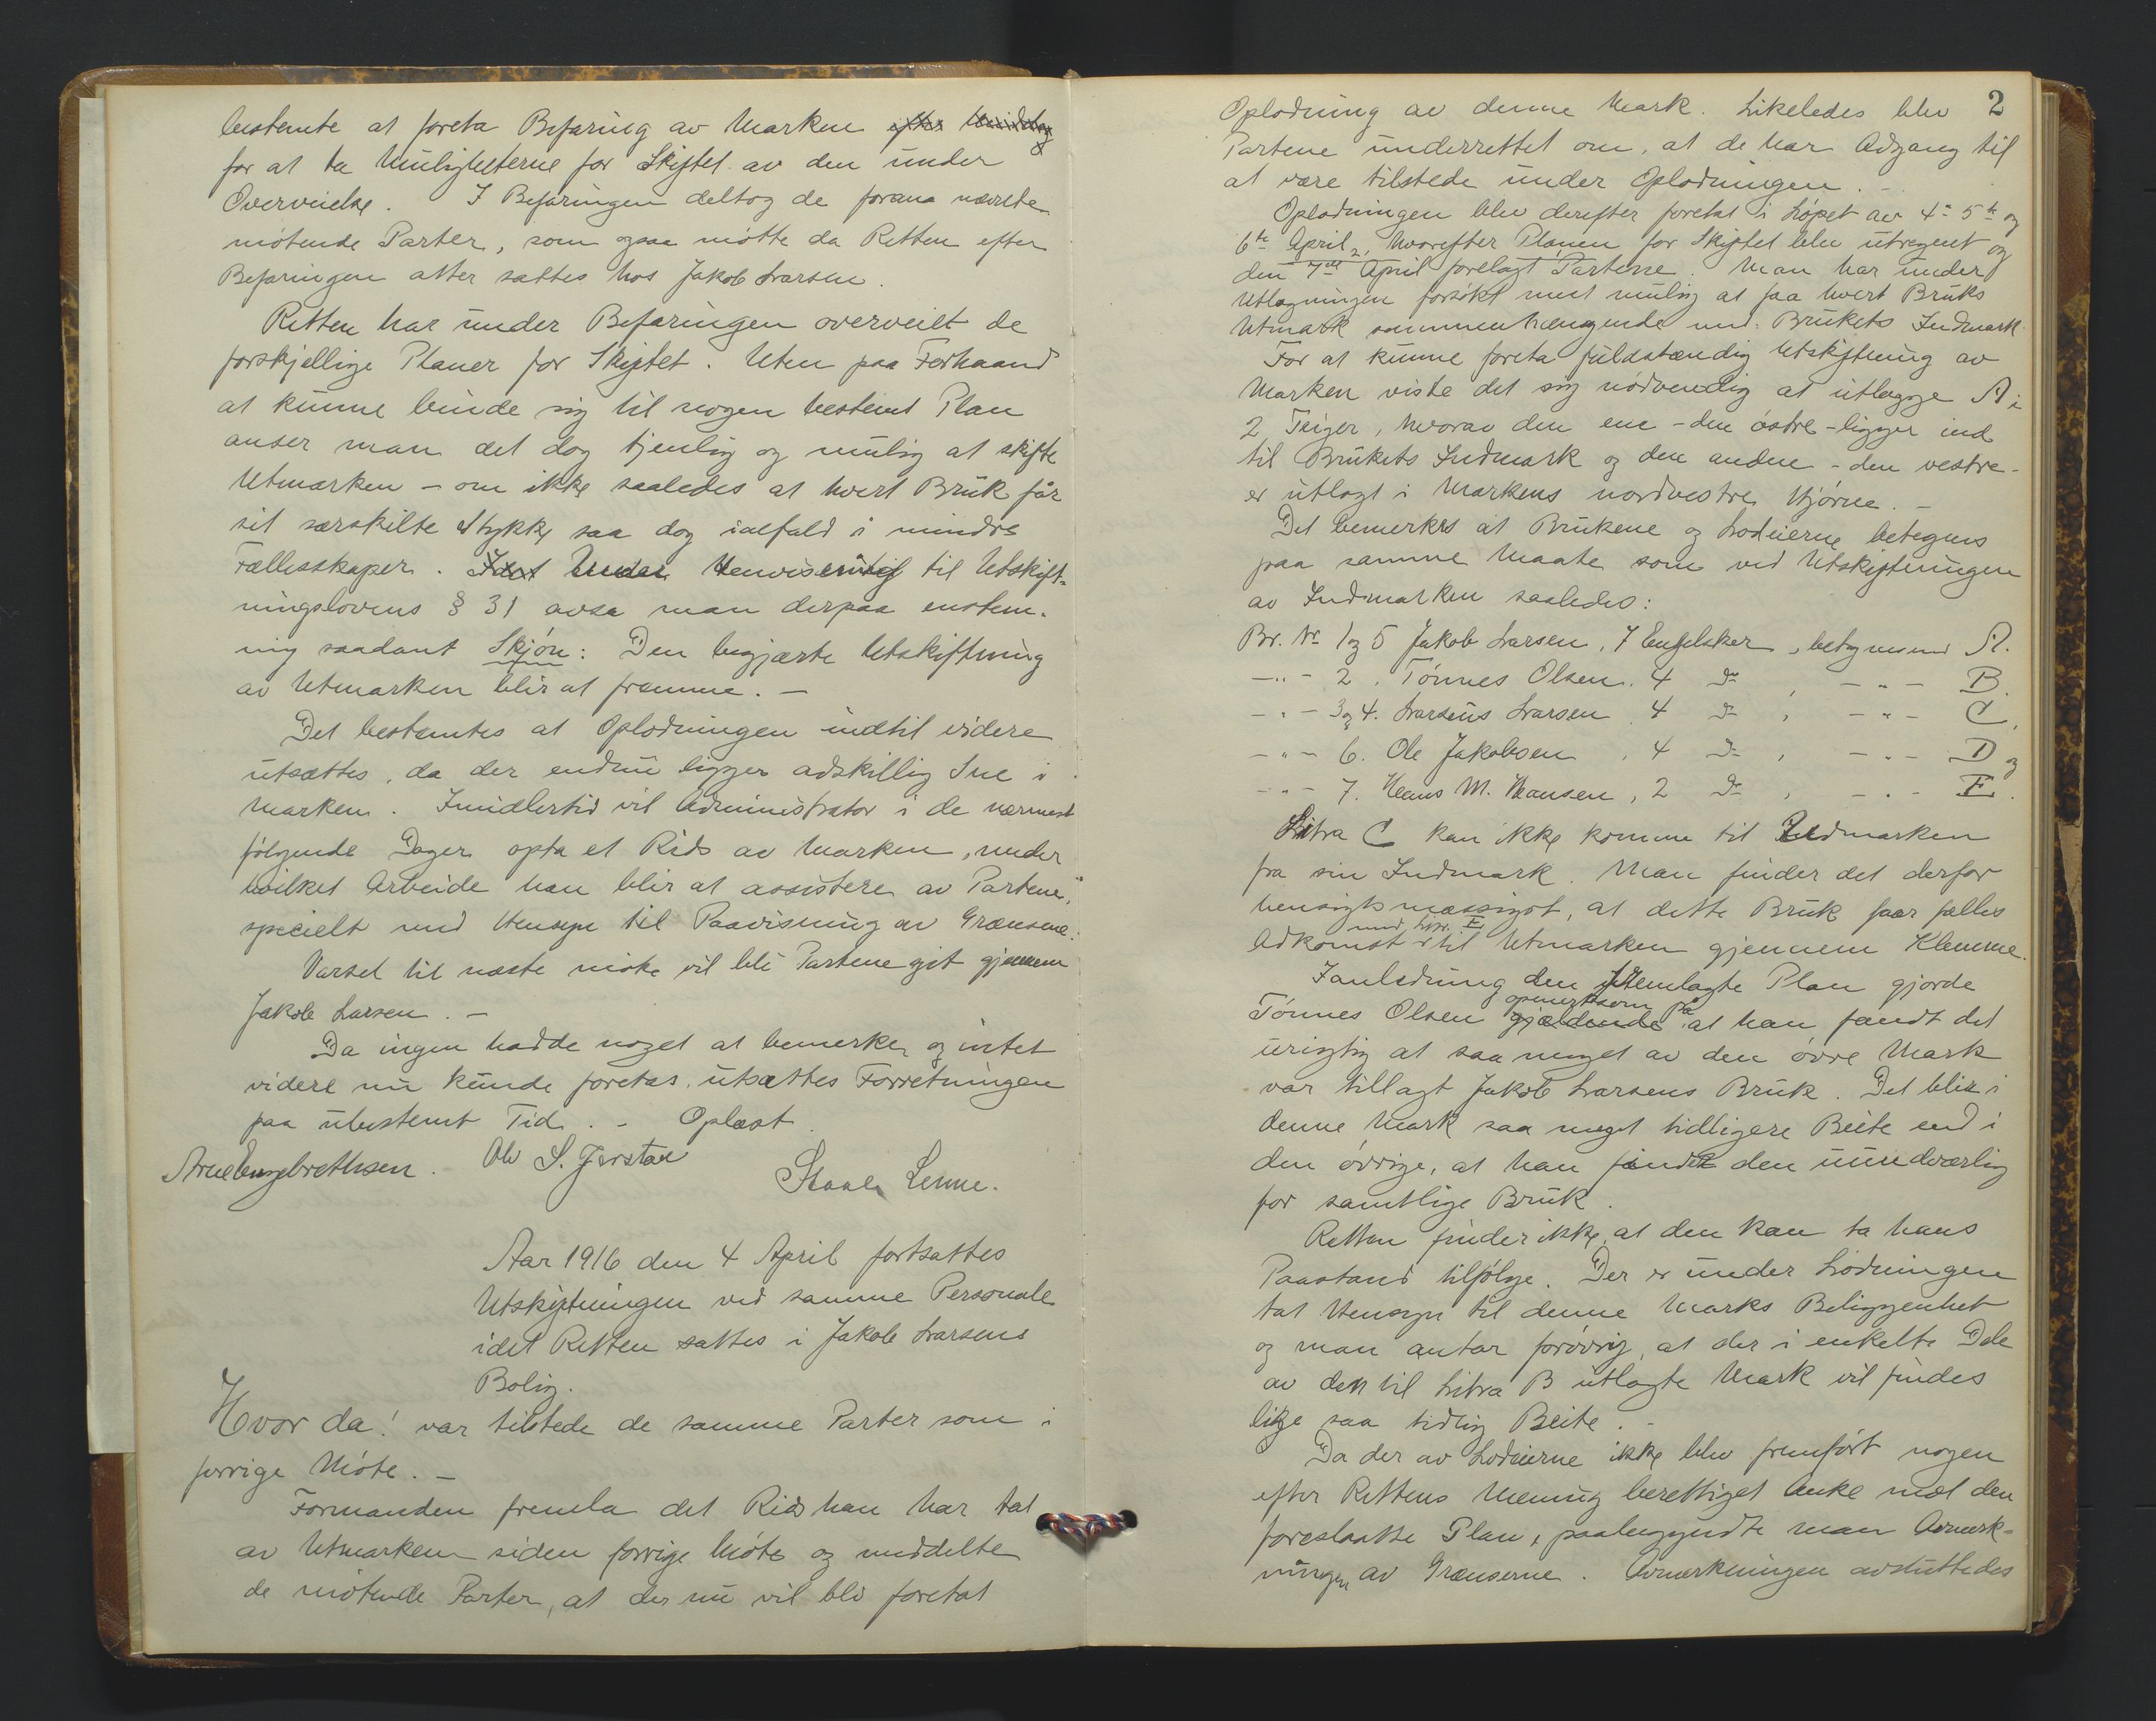 bestemte at foreta Befaring av Marken efter Middag
for at ta Mulighetterne for Skiftet av den under
Overveielse. I Befaringen deltog de forana nævnte
møtende Parter, som ogsaa møtte da Retten efter
Befaringen atter sattes hos Jakob Larsen.
Retten har under Befaringen overveiet de
forskjellige Planer for Skiftet. Uten paa Forhaand
at kunne binde sig til nogen bestemt Plan
anser man det dog tjenlig og mulig at skifte
Utmarken - om ikke saaledes at hvert Bruk får
sit særskilte Stykke saa dog ialfald i mindre
Fællesskaper. Idet Under Henvisning til Utskift-
ningslovens § 31 avsa man derpaa enstem-
mig saadant Skjøn: Den begjærte Utskiftning
av Utmarken blir at fremme. -
Det bestemtes at Oplodningen indtil videre
utsættes, da der endnu ligger adskillig Sne i
Marken. Imidlertid vil Administrator i de nærmest
følgende Dager opta et Rids av Marken, under
hvilket Arbeide han blir at assistere av Partene,
specielt med Hensyn til Paavisning av Grænsene.
Varsel til næste møte vil bli Partene git gjennem
Jakob Larsen. -
Da ingen hadde noget at bemerke og intet
videre nu kunde foretas, utsattes Forretningen
paa ubestemt Tid. - Oplæst.
Arne Engebrethsen. Ole S. Jerstad
Staale Lenne.
Aar 1916 den 4 April fortsattes
Utskiftningen ved samme Personale
idet Retten sattes i Jakob Larsens
Bolig.
Hvor da! var tilstede de samme Parter som i
forrige Møte. -
Formanden fremla det Rids han har tat
av Utmarken siden forrige Møte og meddelte
de møtende Parter, at der nu vil bli foretat
2
Oplodning av denne Mark. Likeledes blev
Partene underrettet om, at de har Adgang til
at være tilstede under Oplodningen. -
Oplodningen blev derefter foretat i Løpet av 4de 5te og
6te April, hvorefter Planen for Skiftet blev utregnet og
den 7de April forelagt Partene. Man har under
Utlægningen forsøkt mest mulig at faa hvert Bruks
Utmark sammenhængende med Brukets Indmark.
For at kunne foreta fuldstændig Utskiftning av
Marken viste det sig nødvendig at utlægge A i
2 Teiger, hvorav den ene - den østre - ligger ind
til Brukets Indmark og den anden - den vestre -
er utlagt i Markens nordvestre Hjørne. -
Det bemerkes at Brukene og Lodeierne betegnes
paa samme Maate som ved Utskiftningen
av Indmarken saaledes:
Br. Nr 1 og 5 Jakob Larsen, 7 Engelsker, betegnes med A.
-"- 2. Tønnes Olsen. 4 Do, -"- B.
-"- 3 og 4. Larsens Larsen. 4 Do, -"- C,
-"- 6. Ole Jakobsen, 4 Do, -"- D og
-"- 7. Hans M. Hansen, 2 Do, -"- E.
Litra C kan ikke komme til Utmarken
fra sin Indmark. Man finder det derfor
hensigtsmæssigst, at dette Bruk faar fælles
med Litr. E
Adkomst til Utmarken gjennem Klemme.
I anledning den fremlagte Plan gjorde
opmerksom på
Tønnes Olsen gjældende at han fandt det
urigtig at saa meget av den øvre Mark
var tillagt Jakob Larsens Bruk. Det blir i
denne Mark saa meget tidligere Beite end i
den øvrige, at han finder den uundværlig
for samtlige Bruk.
Retten finder ikke, at den kan ta hans
Paastand tilfølge. Der er under Lodningen
tat Hensyn til denne Marks Beliggenhet
og man antar forøvrig, at der i enkelte Dele
av den til Litra B utlagte Mark vil findes
like saa tidlig Beite. -
Da der av Lodeierne ikke blev fremført nogen
efter Rettens Mening berettiget Anke mot den
foreslaatte Plan, paabegyndte man Avmerk-
ningen av Grænserne. Avmerkningen avsluttedes